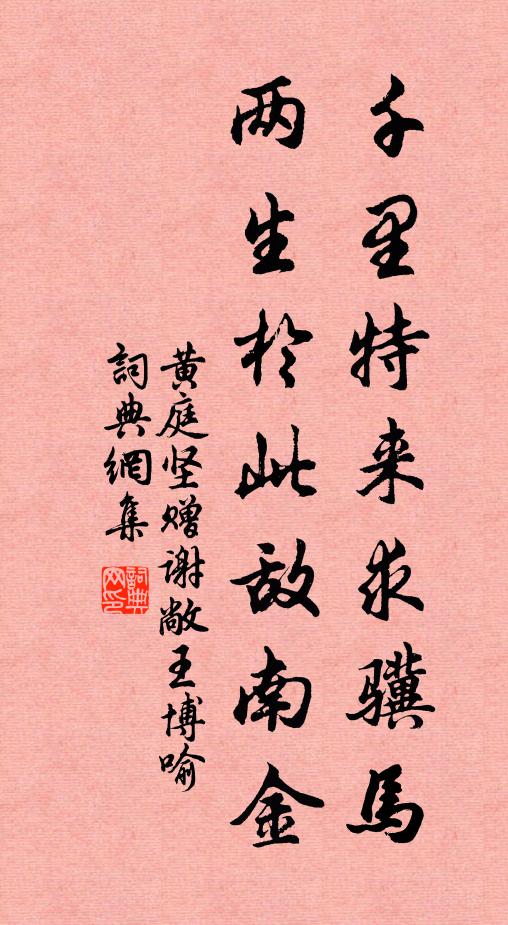 千里特来求骥馬
两生於此敌南金
黄庭坚赠谢敞王博喻
詞典網集
詞典网印